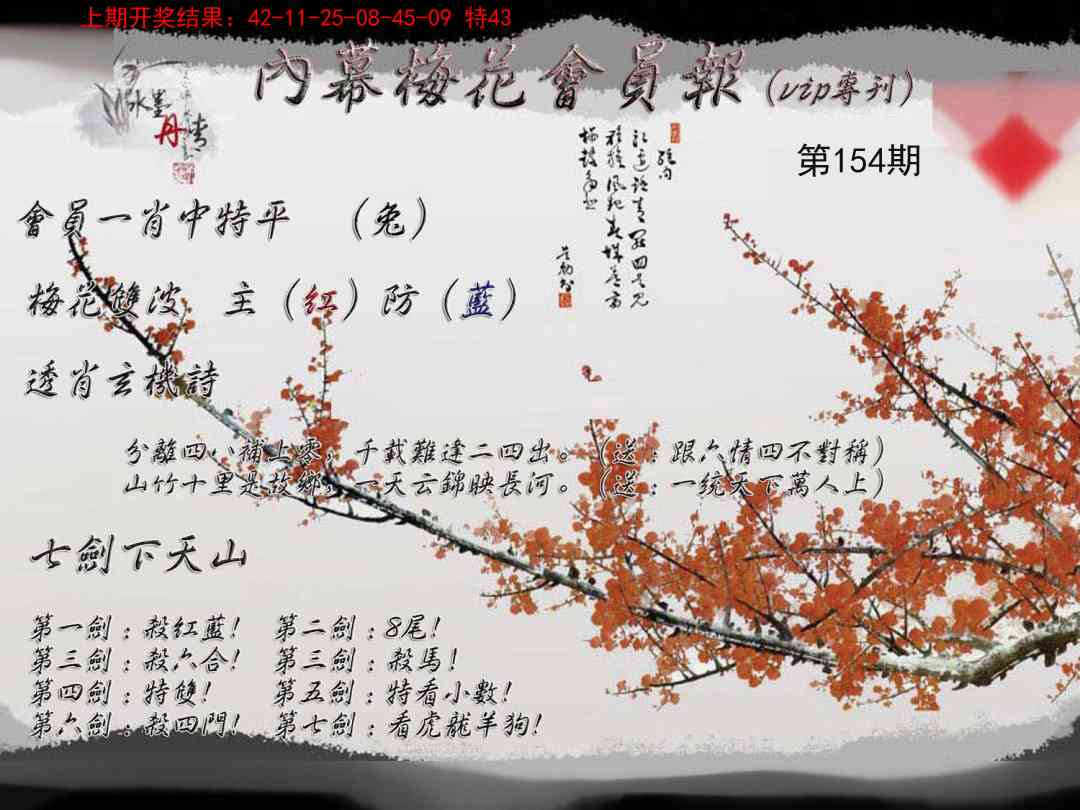 上期开奖结果：42-11-25-08-45-09 特43
內幕梅花會員報(vip專刊)
水墨
丹
第154期
會員一肖中特平 （兔）
梅花雙波 主（紅）防（藍）
透肖玄機詩
分離四八補上零，千載難逢二四出。（送：跟六情四不對稱）
山竹十里是故鄉，一天云錦映長河。（送：一统天下萬人上）
七劍下天山
第一劍：殺紅藍！ 第二劍：8尾！
第三劍：殺六合！ 第三劍：殺馬！
第四劍：特雙！ 第五劍：特看小數！
第六劍：殺四門！ 第七劍：看虎龍羊狗！